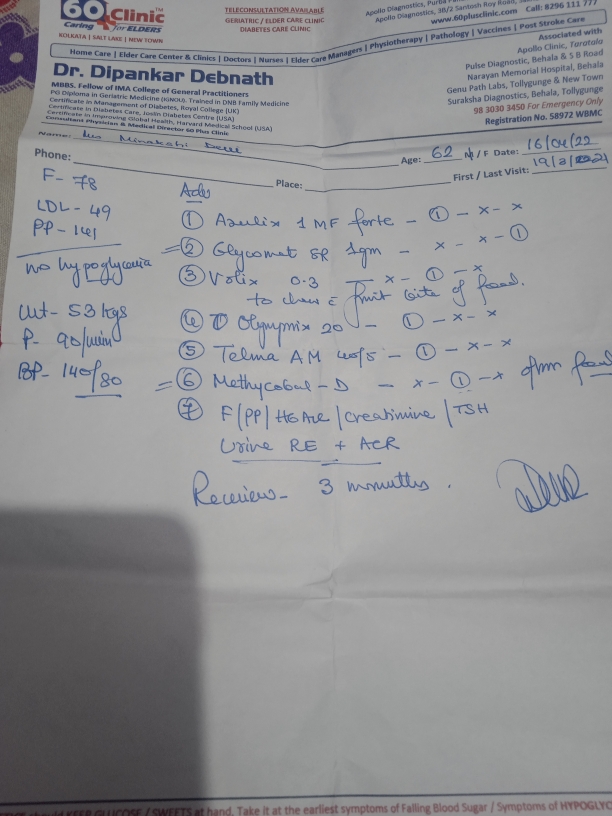 60 Clinic
PLUS
Caring for ELDERS
KOLKATA | SALT LAKE | NEW TOWN
TELECONSULTATION AVAILABLE
GERIATRIC / ELDER CARE CLINIC
DIABETES CARE CLINIC
Apollo Diagnostics, 3B/2 Santosh Roy
www.60plusclinic.com Call: 8296 111 777
Home Care | Elder Care Center & Clinics | Doctors | Nurses | Elder Care Managers | Physiotherapy | Pathology | Vaccines | Post Stroke Care
Dr. Dipankar Debnath
MBBS. Fellow of IMA College of General Practitioners
PG Diploma in Geriatric Medicine Trained in DNB Family Medicine
Certificate in Management of Diabetes, Royal College (UK)
Certificate in Diabetes Care, Joslin Diabetes Centre (USA)
Certificate in Improving Global Health, Harvard Medical School (USA)
Consultant Physician & Medical Director 60 Plus Clinic
Associated with
Apollo Clinic, Taratola
Pulse Diagnostic, Behala & S B Road
Narayan Memorial Hospital, Behala
Genu Path Labs, Tollygunge & New Town
Suraksha Diagnostics, Behala, Tollygunge
98 3030 3450 For Emergency Only
Registration No. 58972 WBMC
Name: Minakshi
Age: 62 M / F Date: 16/04/22
Phone: Place: First / Last Visit: 19/2/2021
F- 78
LDL- 49
PP- 141
no hypoglycemia
Wt- 53 kgs
P- 90/min
BP- 140/80
Adv
① Azulix 1 MF forte - ① - x - x
② Glycomet SR 1gm - x - x - ①
③ Volix 0.3 - x - ① - x
to chew c first bite of food.
④ T Olymprix 20 - ① - x - x
⑤ Telma AM 40/5 - ① - x - x
⑥ Methycobal-D - x - ① - x after food
⑦ F/PP/ HbA1c / Creatinine / TSH
Urine RE + ACR
Review- 3 months.
KEEP GLUCOSE / SWEETS at hand. Take it at the earliest symptoms of Falling Blood Sugar / Symptoms of HYPOGLYC